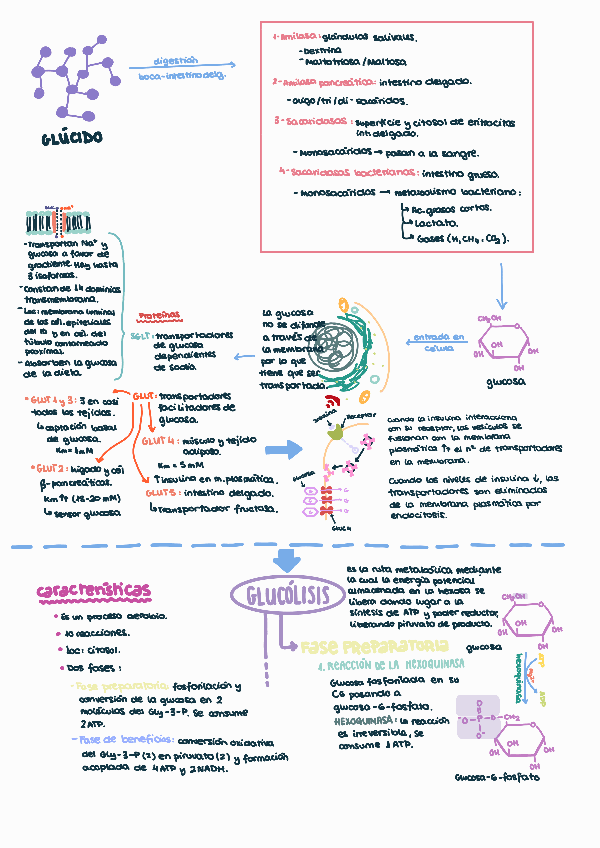 GLÚCIDO
digestión
boca-intestino delg.
1-Amilasa: glándulas salivales.
-Dextrina
-Maltotriosa/Maltosa
2-Amilasa pancreática: intestino delgado.
-oligo/tri/di-sacáridos.
3-Sacaridasas: superficie y citosol de eritrocitos
int. delgado.
-Monosacáridos → pasan a la sangre.
4-Sacaridasas bacterianas: intestino grueso.
-Monosacáridos → metabolismo bacteriano:
Ac. grasos cortos.
Lactato.
Gases (H, CH4, CO2).
-Transportan Na+ y
glucosa a favor de
gradiente. Hay hasta
3 isoformas.
-Constan de 14 dominios
transmembrana.
-Loc: membrana luminal
de las cél. epiteliales
del ID y en cél. del
túbulo contorneado
proximal.
-Absorben la glucosa
de la dieta.
Proteínas
SGLT: transportadores
de glucosa
dependientes
de sodio.
La glucosa
no se difunde
a través de
la membrana
por lo que
tiene que ser
transportada.
entrada en
célula
CH2OH
O
OH
OH
OH
OH
glucosa
GLUT: transportadores
facilitadores de
glucosa.
*GLUT 1 y 3: 3 en casi
todos los tejidos.
↳captación basal
de glucosa.
Km=1mM
*GLUT2: hígado y cél
β-pancreáticas.
Km↑↑ (15-20 mM)
↳ sensor glucosa
GLUT4: músculo y tejido
adiposo.
Km = 5 mM
↑insulina en m.plasmática.
GLUT5: intestino delgado.
↳Transportador fructosa.
Insulina
Receptor
Glucosa
GLUT4
Cuando la insulina interacciona
con su receptor, las vesículas se
fusionan con la membrana
plasmática ↑↑ el nº de transportadores
en la membrana.
Cuando los niveles de insulina ↓, los
transportadores son eliminados
de la membrana plasmática por
endocitosis.
características
• Es un proceso anerobio.
• 10 reacciones.
• Loc: citosol.
• Dos fases:
-Fase preparatoria: fosforilación y
conversión de la glucosa en 2
moléculas del Gly-3-P. Se consume
2ATP.
-Fase de beneficios: conversión oxidativa
del Gly-3-P (2) en piruvato (2) y formación
acoplada de 4ATP y 2NADH.
GLUCÓLISIS
es la ruta metabólica mediante
la cual la energía potencial
almacenada en la hexosa se
libera dando lugar a la
síntesis de ATP y poder reductor,
liberando piruvato de producto.
FASE PREPARATORIA
1. REACCIÓN DE LA HEXOQUINASA
Glucosa fosforilada en su
C6 pasando a
glucosa-6-fosfato.
HEXOQUINASA: la reacción
es irreversible, se
consume 1 ATP.
CH2OH
O
OH
OH
OH
OH
glucosa
hexoquinasa
ATP
Mg2+
ADP
O
-O-P-O-CH2
O-
O
OH
OH
OH
OH
Glucosa-6-fosfato